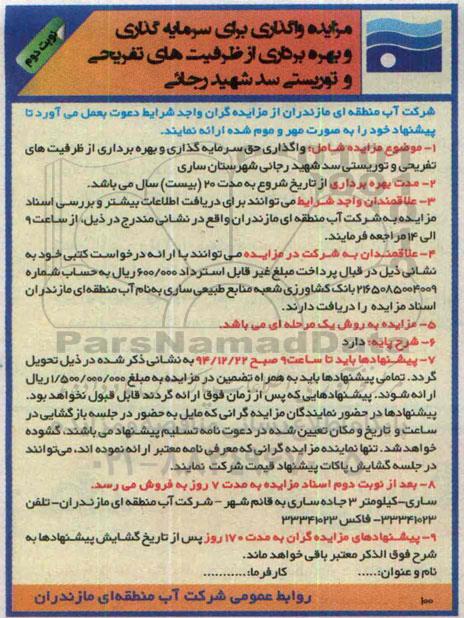 مزایده واگذاری برای سرمایه گذاری
و بهره برداری از ظرفیت های تفریحی
و توریستی سد شهید رجائی
نوبت دوم
شرکت آب منطقه ای مازندران از مزایده گران واجد شرایط دعوت بعمل می آورد تا
پیشنهاد خود را به صورت مهر و موم شده ارائه نمایند.
۱- موضوع مزایده شامل: واگذاری حق سرمایه گذاری و بهره برداری از ظرفیت های
تفریحی و توریستی سد شهید رجائی شهرستان ساری
۲- مدت بهره برداری از تاریخ شروع به مدت ۲۰ (بیست) سال می باشد.
۳- علاقمندان واجد شرایط می توانند برای دریافت اطلاعات بیشتر و بررسی اسناد
مزایده به شرکت آب منطقه ای مازندران واقع در نشانی مندرج در ذیل، از ساعت ۹
الی ۱۴ مراجعه فرمایند.
۴- علاقمندان به شرکت در مزایده می توانند با ارائه درخواست کتبی خود به
نشانی ذیل در قبال پرداخت مبلغ غیر قابل استرداد ۶۰۰/۰۰۰ ریال به حساب شماره
۲۱۶۵۰۸۵۰۰۴۰۰۹ بانک کشاورزی شعبه منابع طبیعی ساری به نام آب منطقه ای مازندران
اسناد مزایده را دریافت دارند.
۵- مزایده به روش یک مرحله ای می باشد.
۶- شرح پایه: دارد
۷- پیشنهادها باید تا ساعت ۹ صبح ۹۴/۱۲/۲۲ به نشانی ذکر شده در ذیل تحویل
گردد. تمامی پیشنهادها باید به همراه تضمین در مزایده به مبلغ ۱/۵۰۰/۰۰۰/۰۰۰ ریال
ارائه شوند. پیشنهادهایی که پس از زمان فوق ارائه گردند قابل قبول نخواهد بود.
پیشنهادها در حضور نمایندگان مزایده گرانی که مایل به حضور در جلسه بازگشایی در
ساعت و تاریخ و مکان تعیین شده در دعوت نامه تسلیم پیشنهاد می باشند، گشوده
خواهد شد. تنها نماینده مزایده گرانی که معرفی نامه معتبر ارائه نموده اند، می توانند
در جلسه گشایش پاکات پیشنهاد قیمت شرکت نمایند.
۸- بعد از نوبت دوم اسناد مزایده به مدت ۷ روز به فروش می رسد.
ساری-کیلومتر ۳ جاده ساری به قائم شهر - شرکت آب منطقه ای مازندران-تلفن
۳۳۳۴۱۰۲۳- فاکس ۳۳۳۴۱۰۲۳
۹- پیشنهادهای مزایده گران به مدت ۱۷۰ روز پس از تاریخ گشایش پیشنهادها به
شرح فوق الذکر معتبر باقی خواهد ماند.
نام و عنوان:...... کارفرما:...........
روابط عمومی شرکت آب منطقه ای مازندران
۱۰۰
ParsNamadData